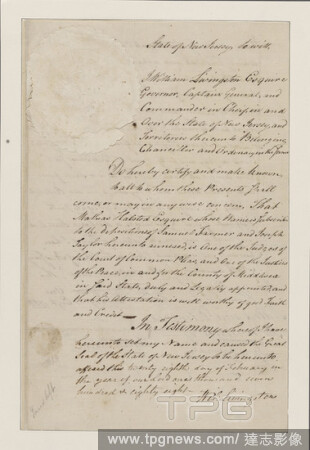 State of New Jersey, to wit,
William Livingston Esquire
Governor, Captain General, and
Commander in Chief in and
Over the State of New Jersey, and
Territories thereunto Belonging
Chancellor and Ordinary in the same
Do hereby certify and make known
to all to whom these Presents shall
come, or may in any wise concern, That
Halsted Esquire whose Name is
to the Depositions of Samuel Farmer and Joseph
Taylor hereunto annexed, is One of the Judges of
the Court of Common Pleas, and One of the Justices
of the Peace, in and for the County of Middlesex
in said State, duly and Legally appointed and
that his Attestation is well worthy of good Faith
and Credit
In Testimony whereof I have
hereunto set my Name and caused the Great
Seal of the State of New Jersey to be hereunto
affixed this twenty eighth day of February in
the year of our Lord one thousand seven
hundred & eighty eight
Wil. Livingston
TPG
www.tpgnews.com | 達志影像